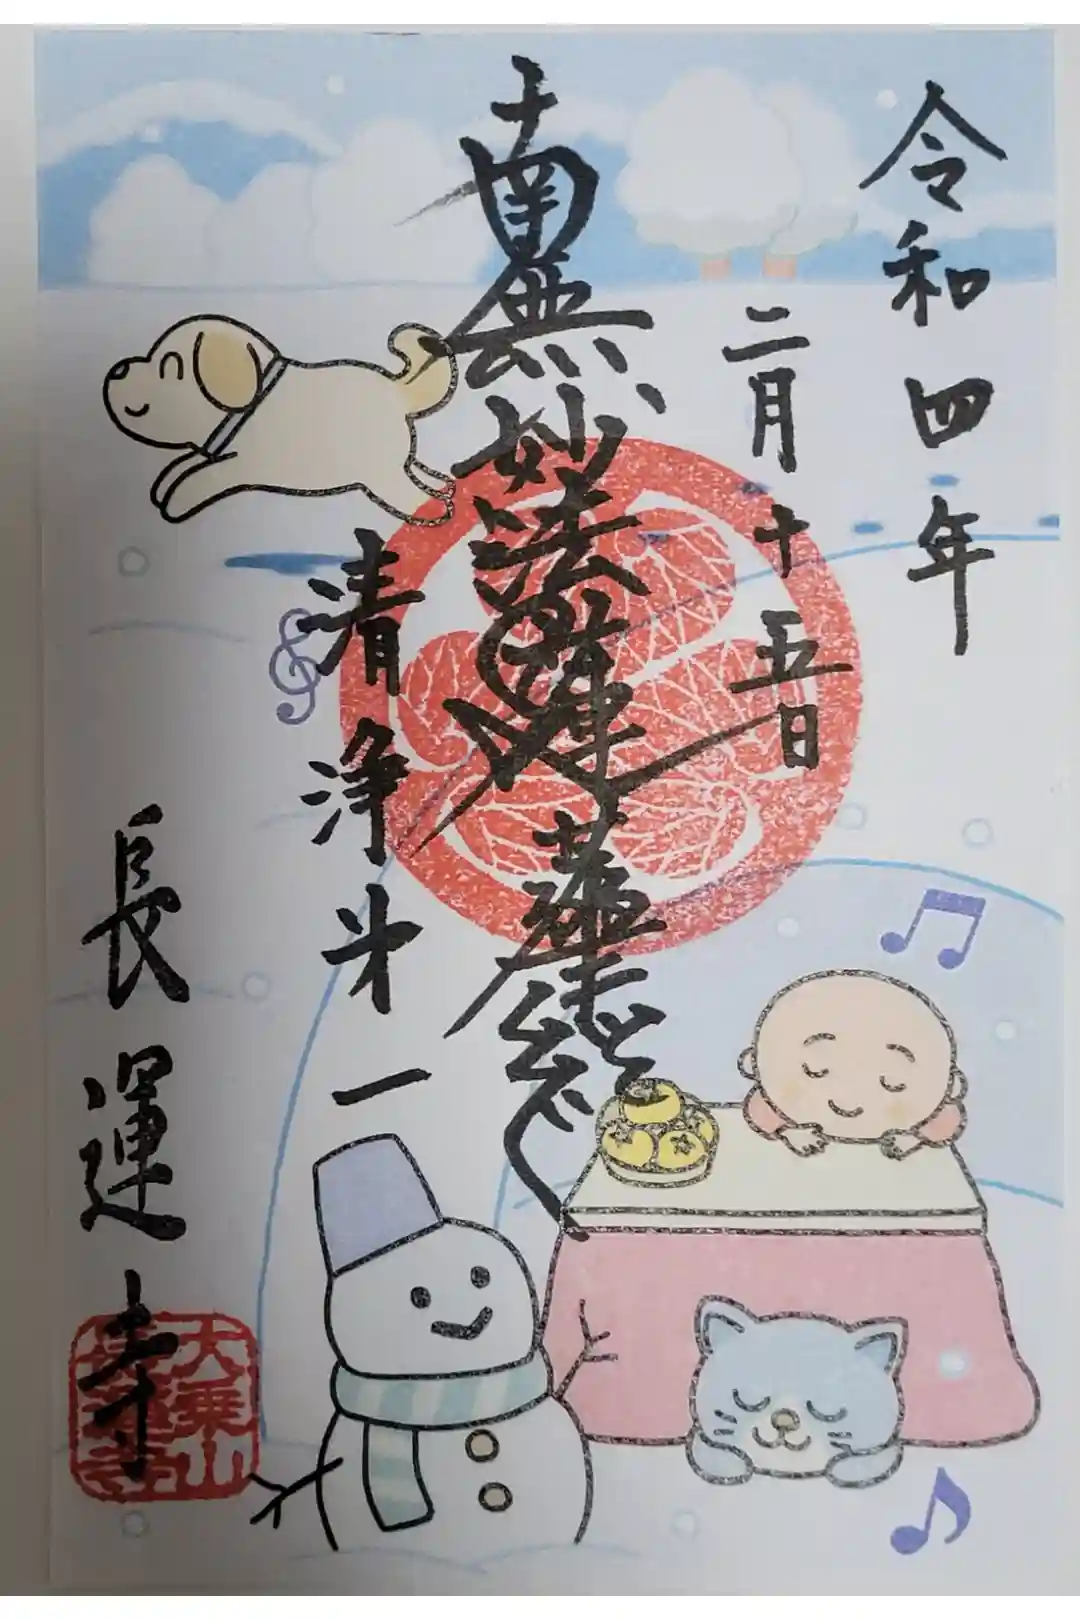 令和四年
二月十五日
南無妙法蓮華経
清浄
一
長運寺
大乗山
長運寺